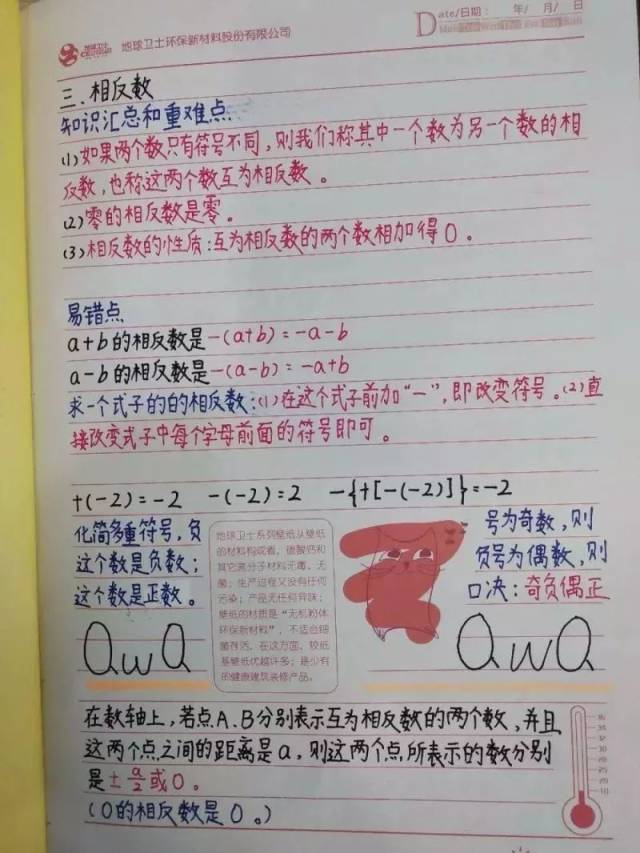 地球卫士环保新材料股份有限公司
Date/日期: 年/ 月/ 日
三.相反数
知识汇总和重难点
(1)如果两个数只有符号不同,则我们称其中一个数为另一个数的相
反数,也称这两个数互为相反数。
(2)零的相反数是零。
(3)相反数的性质:互为相反数的两个数相加得0。
易错点
a+b的相反数是-(a+b)=-a-b
a-b的相反数是-(a-b)=-a+b
求一个式子的的相反数:(1)在这个式子前加“一”,即改变符号。(2)直
接改变式子中每个字母前面的符号即可。
+(-2)=-2 -(-2)=2 -{+[-(-2)]}=-2
化简多重符号,负 号为奇数,则
这个数是负数; 负号为偶数,则
这个数是正数。 口决:奇负偶正
地球卫士系列壁纸从壁纸
的材料构成看,碳酸钙和
其它高分子材料无毒、无
菌;生产过程又没有任何
污染;产品无任何异味;
壁纸的材质是“无机粉体
环保新材料”,不适合细
菌存活。在这方面,较纸
基壁纸优越许多;是少有
的健康建筑装修产品。
QwQ QwQ
在数轴上,若点A.B分别表示互为相反数的两个数,并且
这两个点之间的距离是a,则这两个点所表示的数分别
是±a/2或0。
(0的相反数是0。)